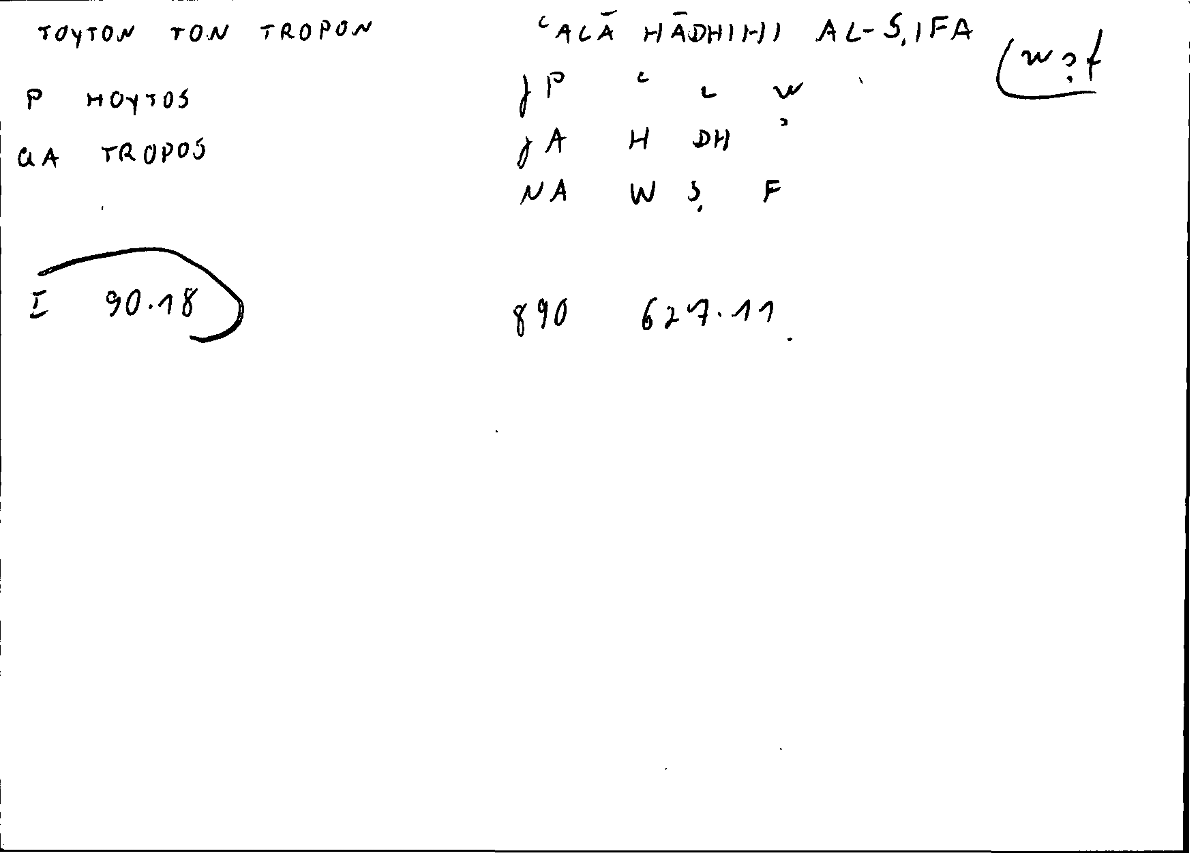 TOYTON TON TROPON ʿALĀ HĀDHIHI AL-ṢIFA (wṣf
P HOYTOS JP ʿ L W
QA TROPOS JA H DH ʾ
NA W Ṣ F
I 90.18 890 627.11